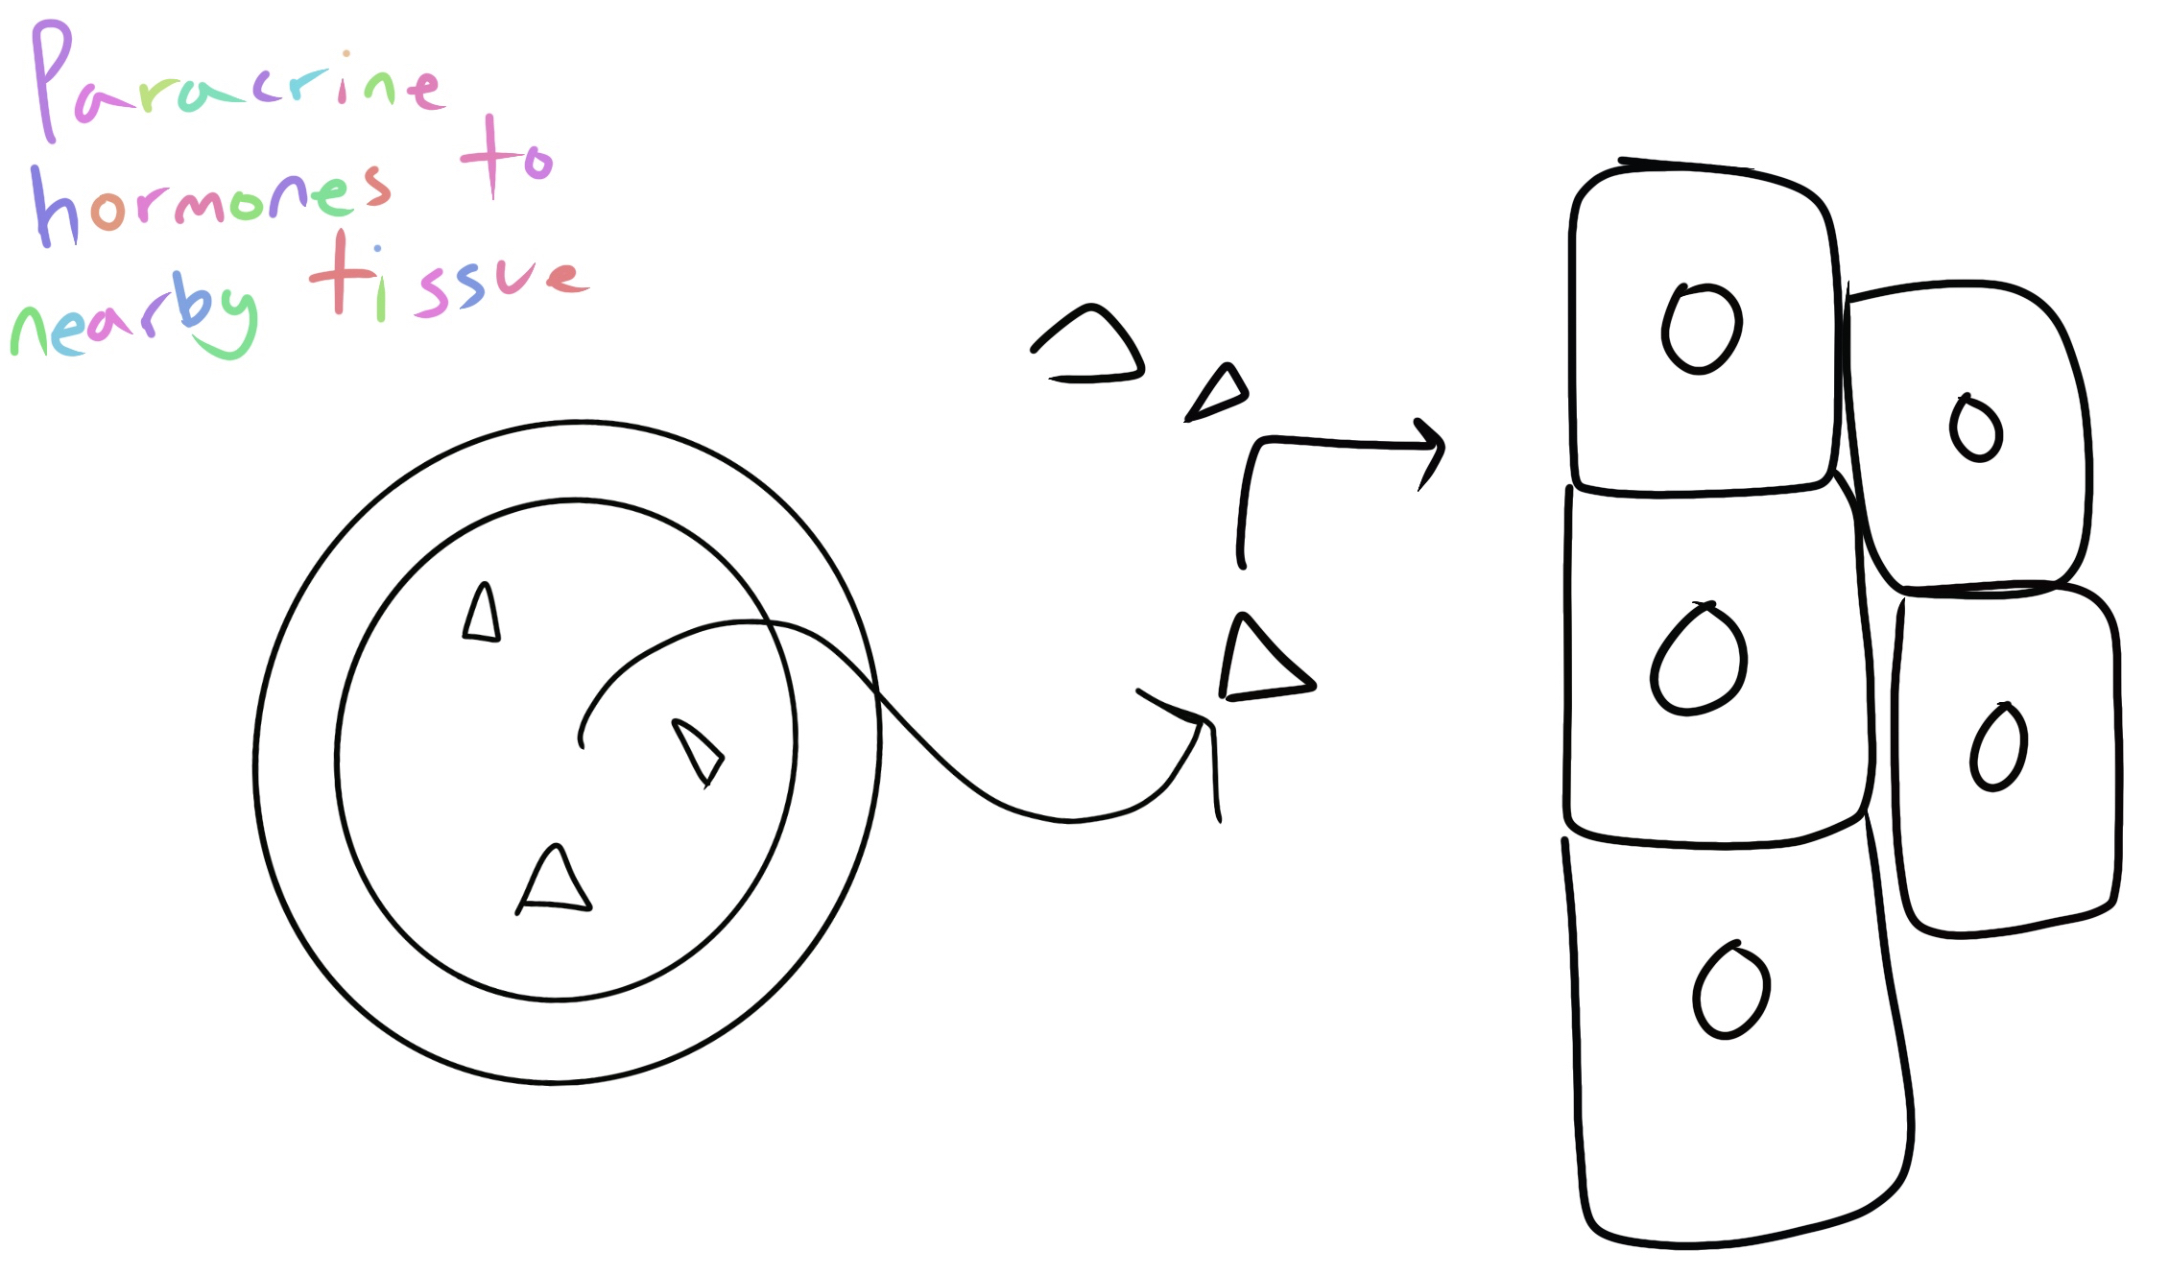 Paracrine
hormones to
nearby tissue